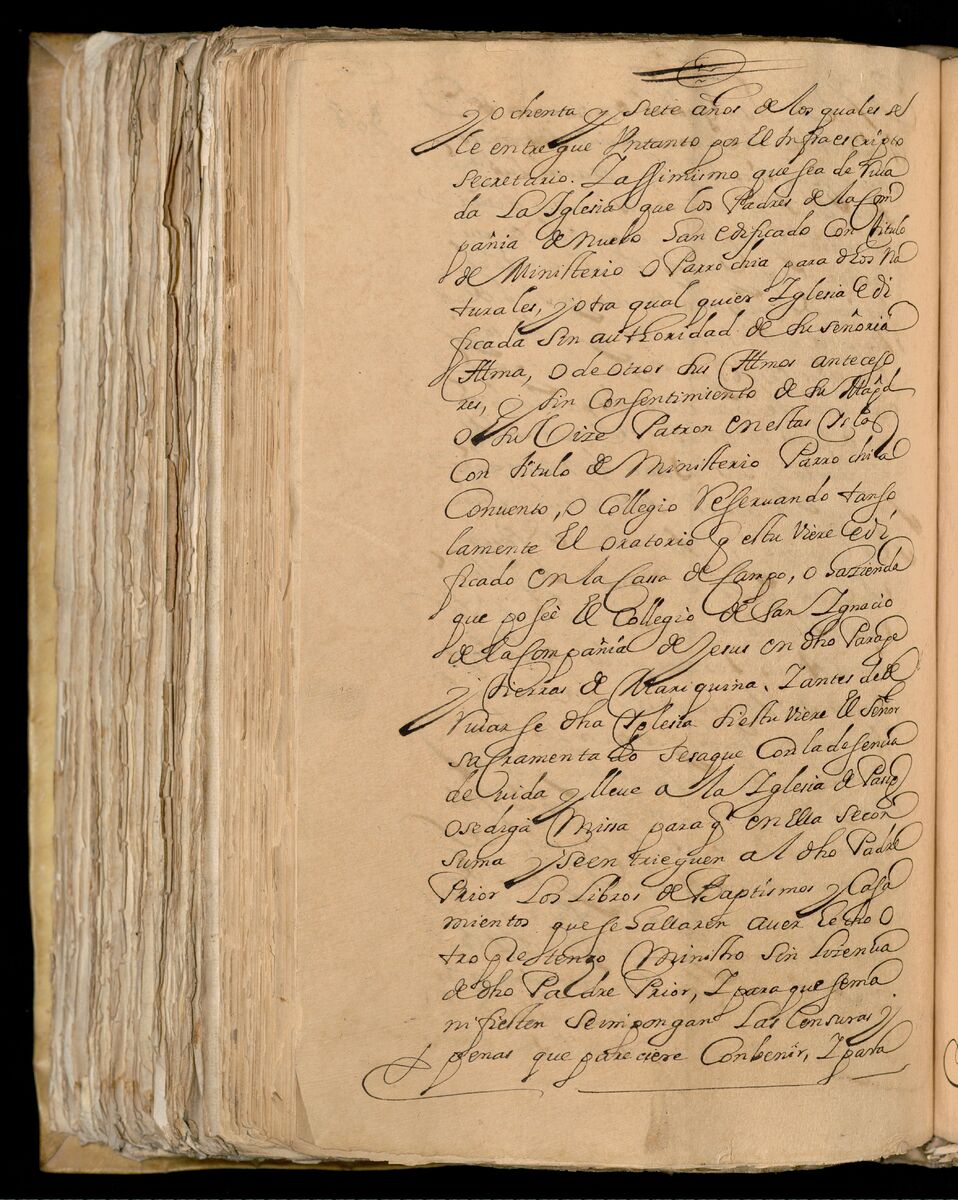 y ochenta y siete años de los quales se
le entregue Vntanto por El Infraescripto
Secretario. Y assimismo que sea de Rui
da La Iglesia que los Padres de la Com
pañia de nuebo han edificado con titulo
de Ministerio o Parrochia para dhos Na
turales, y otra qual quier Iglesia edi
ficada sin authoridad de su señoria
Illma, o de otros sus Illmos anteceso
res, y sin Consentimiento de su Magd
o su Vize Patron en estas Islas
Con titulo de Ministerio Parrochia
Convento, o Collegio Reservando tanso
lamente El oratorio q estu Viere edi
ficado en la Cassa de Campo, o hazienda
que posee El Collegio de San Ignacio
de la Compañia de Jesus en dho Parage
y tierras de Mariquina. Y antes de de
Ruiarse dha Iglesia si estu Viere El Señor
sacramentado sesaque Con la desencia
devida y lleve a la Iglesia de Pasig
o se diga Missa para q en Ella se con
suma y se entrieguen al dho Padre
Prior Los Libros de Baptismos y Casa
mientos que se hallaren auer hecho o
tro pretenso Ministro sin lizencia
de dho Padre Prior, Y para que sema
nifiesten se impongan Las Censuras y
penas que pareciere Conbenir, Y para